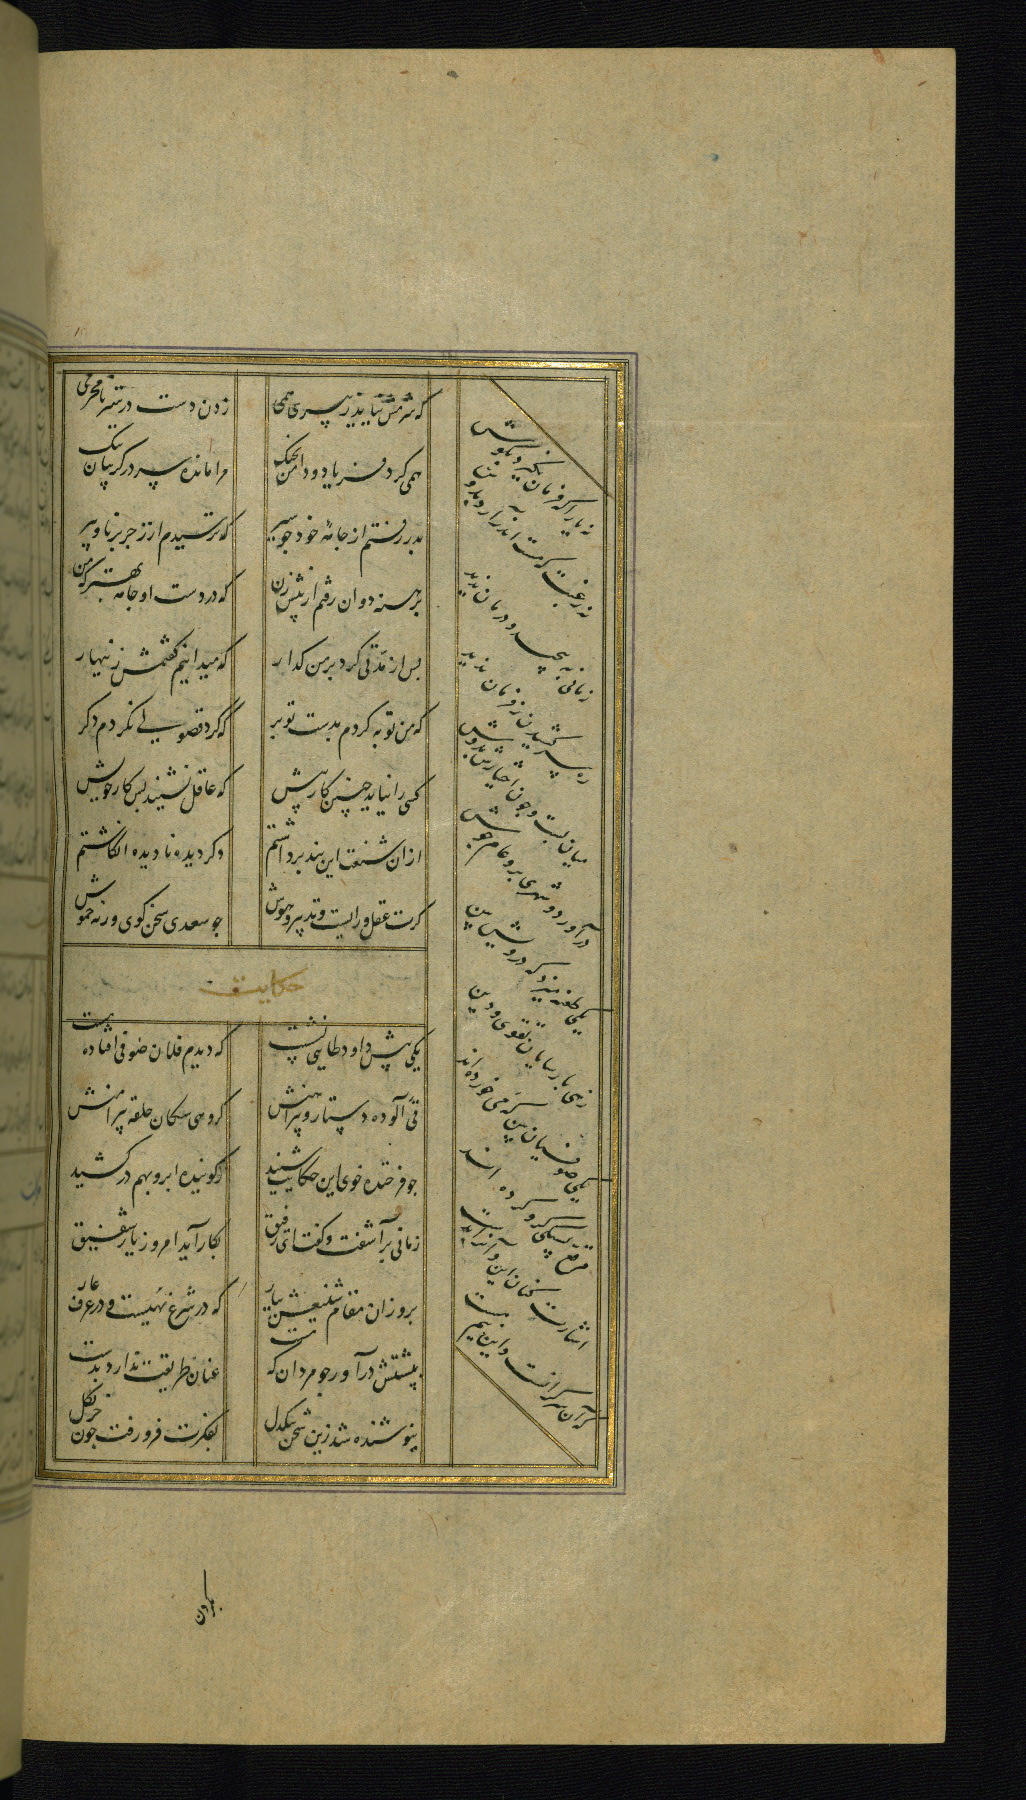 که شرمش نیاید ز پیری همی
زدن دست در ستر نامحرمی
همی کرد فریاد و دامن بچنگ
مرا مانده سر در گریبان تنگ
بدر رفتم از جامه خود جو سیر
که ترسیدم از زجر برنا و پیر
برهنه دوان رفتم از پیش زن
که در دست او جامه بهتر که من
پس از مدتی کرد بر من گذار
که میدانیم گفتمش زینهار
که من توبه کردم بدست تو بر
که گرد فضولی نگردم دگر
کسی را نیاید چنین کار پیش
که عاقل نشیند پس کار خویش
ازان شنعت این پند برداشتم
دگر دیده نادیده انگاشتم
گرت عقل و رایست و تدبیر و هوش
جو سعدی سخن گوی ورنه خموش
حکایت
یکی پیش داود طایی نشست
که دیدم فلان صوفی افتاده مست
قی آلوده دستار و پیراهنش
گروهی سکان حلقه پیرامنش
جو فرخنده خوی این حکایت شنید
ز گوینده ابرو بهم در کشید
زمانی برآشفت و گفت ای رفیق
بکار آید امروز یار شفیق
برو زان مقام شنیعش بیار
که در شرع نهیست و در عرف عار
بپشتش درآور جو مردان که مست
عنان طریقت ندارد بدست
نیوشنده شد زین سخن تنگدل
بفکرت فرو رفت جون خر بگل
نه یارا که فرمان نگیرد بگوش
نه رغبت که مست اندر آرد بدوش
زمانی بپیچید و درمان ندید
ره سر کشیدن ز فرمان ندید
میان بست و بی اختیارش بدوش
درآورد و شهری برو عام جوش
یکی طعنه میزد که درویش بین
زهی پارسایان تقوی و دین
یکی صوفیان بین که می خورده اند
مرقع بسیکی گرو کرده اند
اشارت کنان این و آنرا بدست
که آن سرگرانست و این نیم مست